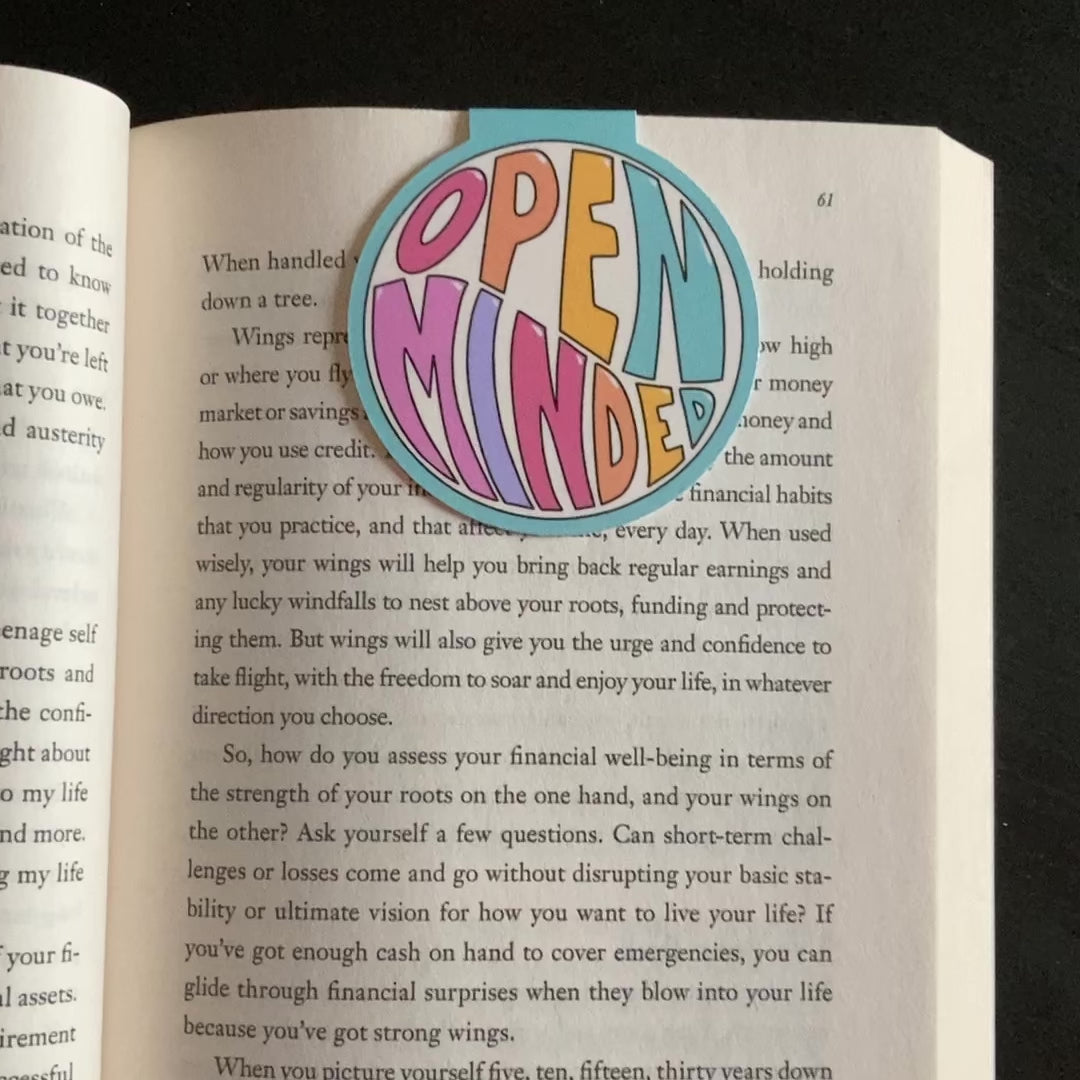 ation of the
ed to know
it together
t you're left
at you owe.
d austerity
enage self
roots and
the confi-
ght about
o my life
nd more.
g my life
your fi-
l assets.
irement
cessful
61
OPEN
MINDED
When handled holding
down a tree.
Wings repre ow high
or where you fly r money
market or savings oney and
how you use credit. the amount
and regularity of your in financial habits
that you practice, and that affect every day. When used
wisely, your wings will help you bring back regular earnings and
any lucky windfalls to nest above your roots, funding and protect-
ing them. But wings will also give you the urge and confidence to
take flight, with the freedom to soar and enjoy your life, in whatever
direction you choose.
So, how do you assess your financial well-being in terms of
the strength of your roots on the one hand, and your wings on
the other? Ask yourself a few questions. Can short-term chal-
lenges or losses come and go without disrupting your basic sta-
bility or ultimate vision for how you want to live your life? If
you've got enough cash on hand to cover emergencies, you can
glide through financial surprises when they blow into your life
because you've got strong wings.
When you picture yourself five, ten, fifteen, thirty years down